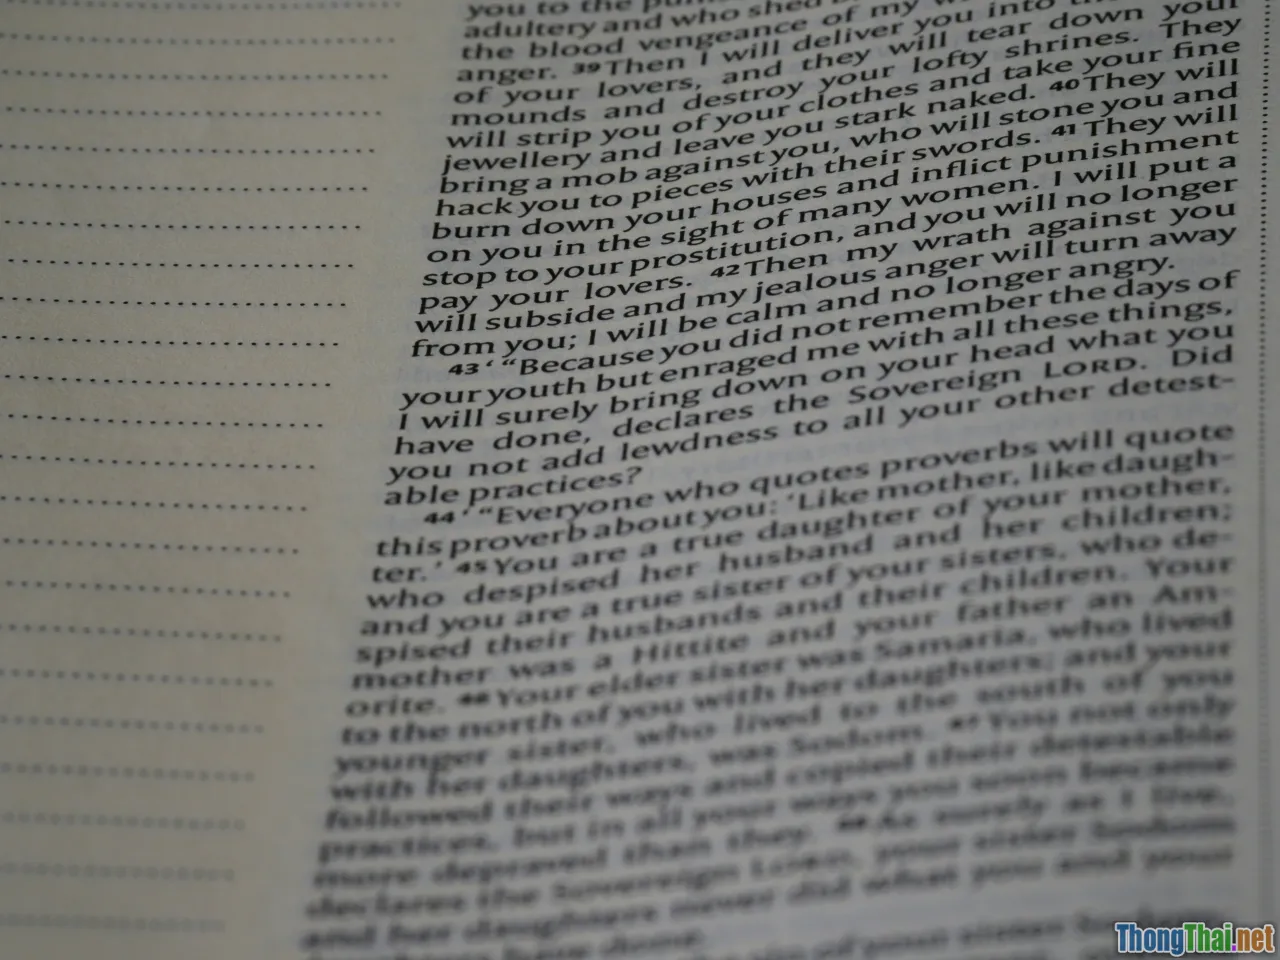 you to the
adultery and who shed
the blood vengeance of my
anger. 39Then I will deliver you into
of your lovers, and they will tear down your
mounds and destroy your lofty shrines. They
will strip you of your clothes and take your fine
jewellery and leave you stark naked. 40They will
bring a mob against you, who will stone you and
hack you to pieces with their swords. 41They will
burn down your houses and inflict punishment
on you in the sight of many women. I will put a
stop to your prostitution, and you will no longer
pay your lovers. 42Then my wrath against you
will subside and my jealous anger will turn away
from you; I will be calm and no longer angry.
43‘ “Because you did not remember the days of
your youth but enraged me with all these things,
I will surely bring down on your head what you
have done, declares the Sovereign LORD. Did
you not add lewdness to all your other detest-
able practices?
44‘ “Everyone who quotes proverbs will quote
this proverb about you: ‘Like mother, like daugh-
ter.’ 45You are a true daughter of your mother,
who despised her husband and her children;
and you are a true sister of your sisters, who de-
spised their husbands and their children. Your
mother was a Hittite and your father an Am-
orite. 46Your elder sister was Samaria, who lived
to the north of you with her daughters; and your
younger sister, who lived to the south of you
with her daughters, was Sodom. 47You not only
followed their ways and copied their detestable
practices, but in all your ways you soon became
more depraved than they. 48As surely as I live,
declares the Sovereign LORD, your sister Sodom
and her daughters never did what you and your
ThongThai.net